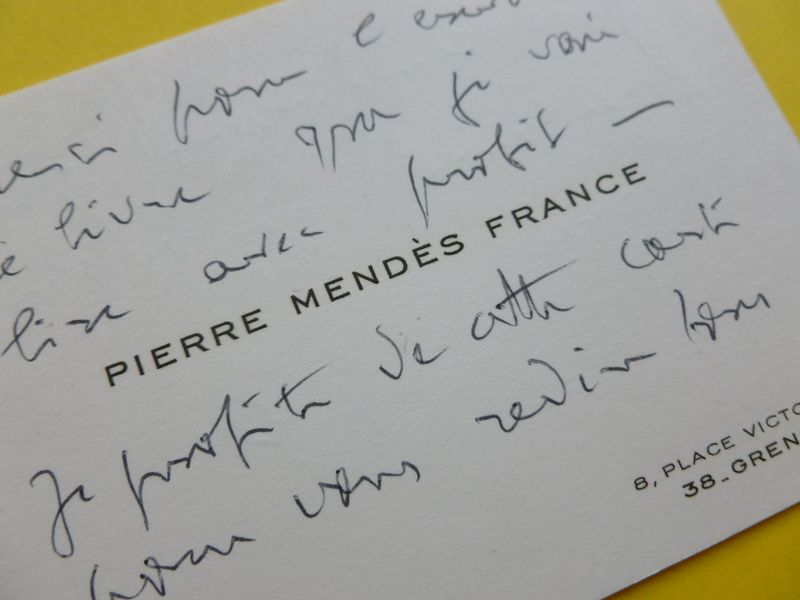 pour l'envoi
livre que je vais
lire avec profit —
PIERRE MENDÈS FRANCE
Je profite de cette carte
pour vous redire tous
8, PLACE VICTO
38_GREN